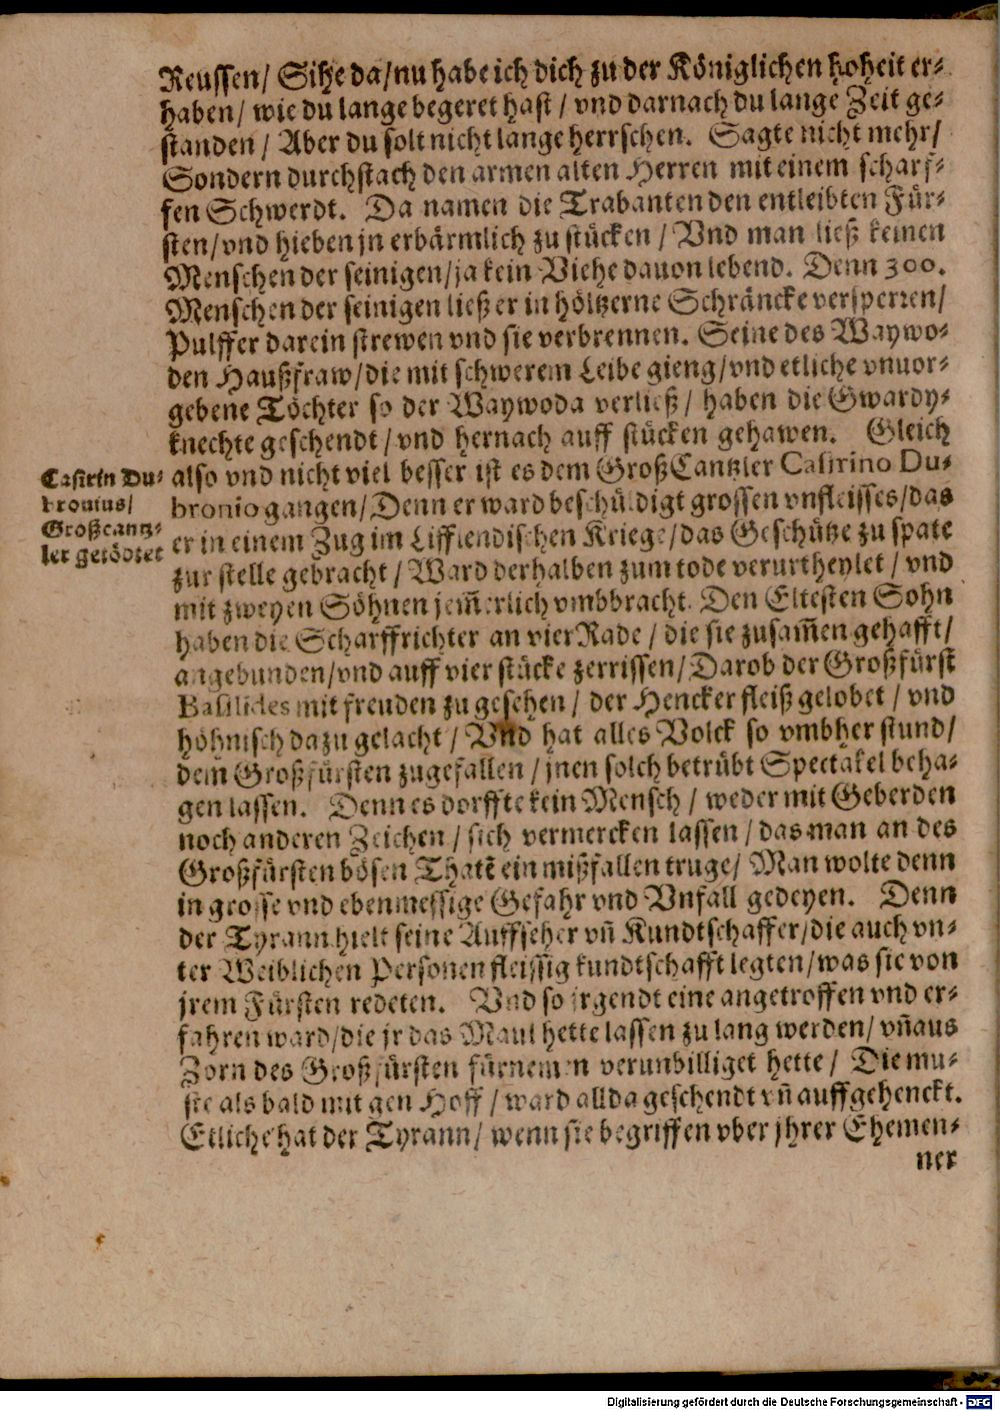 Reussen/ Sihe da/nu habe ich dich zu der Königlichen hoheit er-
haben/ wie du lange begeret hast/ vnd darnach du lange Zeit ge-
standen/ Aber du solt nicht lange herrschen. Sagte nicht mehr/
Sondern durchstach den armen alten Herren mit einem scharf-
fen Schwerdt. Da namen die Trabanten den entleibten Für-
sten/vnd hieben jn erbärmlich zu stücken/ Vnd man ließ keinen
Menschen der seinigen/ja kein Viehe dauon lebend. Denn 300.
Menschen der seinigen ließ er in höltzerne Schräncke versperren/
Pulffer darein strewen vnd sie verbrennen. Seine des Waywo-
den Haußfraw/die mit schwerem Leibe gieng/vnd etliche vnuor-
gebene Töchter so der Waywoda verließ/ haben die Gwardy-
knechte geschendt/vnd hernach auff stücken gehawen. Gleich
Casirin Du-
brouius/
Großcantz-
ler getödtet
also vnd nicht viel besser ist es dem GroßCantzler Casirino Du-
bronio gangen/Denn er ward beschüldigt grossen vnfleisses/das
er in einem Zug im Lifflendischen Kriege/das Geschütze zu spate
zur stelle gebracht/ Ward derhalben zum tode verurtheylet/ vnd
mit zweyen Söhnen jem̃erlich vmbbracht. Den Eltesten Sohn
haben die Scharffrichter an vier Rade/ die sie zusam̃en gehafft/
angebunden/vnd auff vier stücke zerrissen/Darob der Großfürst
Basilides mit freuden zu gesehen/ der Hencker fleiß gelobet/ vnd
höhnisch dazu gelacht/ Vnd hat alles Volck so vmbher stund/
dem Großfürsten zugefallen/ jnen solch betrübt Spectakel beha-
gen lassen. Denn es dorffte kein Mensch/ weder mit Geberden
noch anderen Zeichen/ sich vermercken lassen/ das man an des
Großfürsten bösen Thatẽ ein mißfallen truge/ Man wolte denn
in grosse vnd ebenmessige Gefahr vnd Vnfall gedeyen. Denn
der Tyrann hielt seine Auffseher vñ Kundtschaffer/die auch vn-
ter Weiblichen Personen fleissig kundtschafft legten/was sie von
jrem Fürsten redeten. Vnd so jrgendt eine angetroffen vnd er-
fahren ward/die jr das Maul hette lassen zu lang werden/ vñ aus
Zorn des Großfürsten fürnemen verunbilliget hette/ Die mu-
ste als bald mit gen Hoff/ ward allda geschendt vñ auffgehenckt.
Etliche hat der Tyrann/ wenn sie begriffen vber jhrer Ehemen-
ner
Digitalisierung gefördert durch die Deutsche Forschungsgemeinschaft - DFG